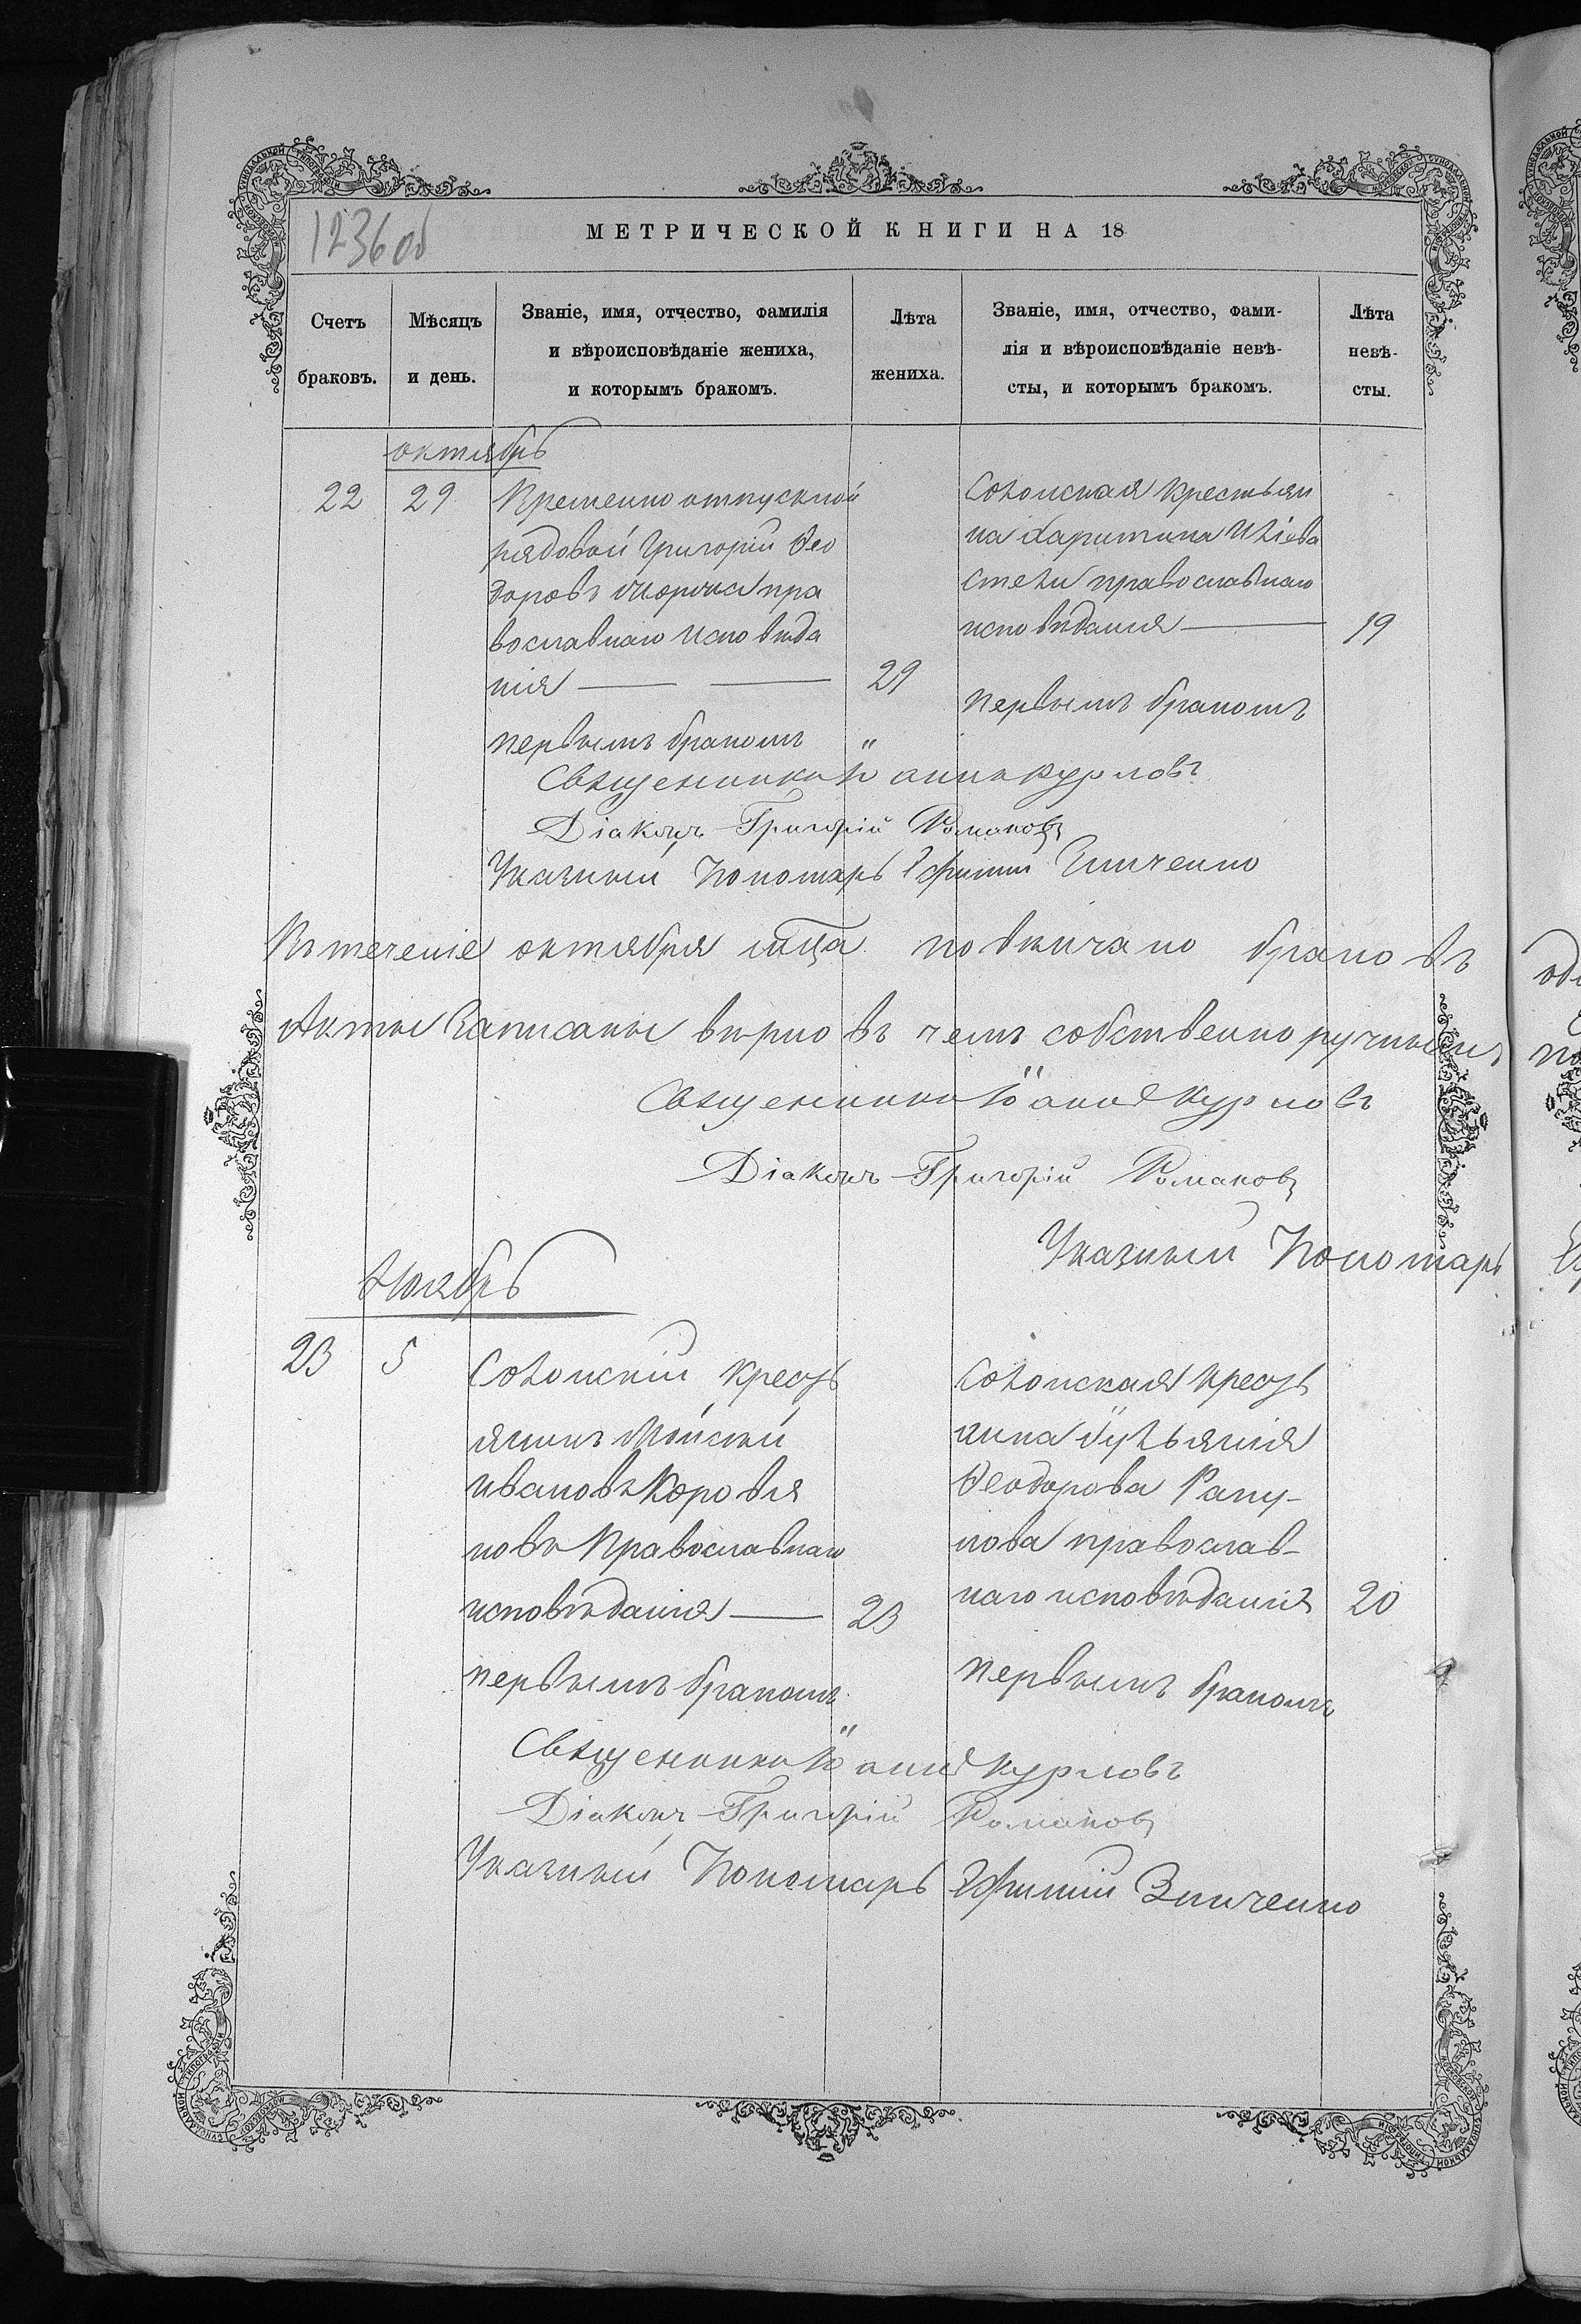 1236 об
МЕТРИЧЕСКОЙ КНИГИ НА 18
Счетъ браковъ.
Мѣсяцъ и день.
Званіе, имя, отчество, фамилія
и вѣроисповѣданіе жениха,
и которымъ бракомъ.
Лѣта жениха.
Званіе, имя, отчество, фами-
лія и вѣроисповѣданіе невѣ-
сты, и которымъ бракомъ.
Лѣта невѣ-
сты.
октябрь
22
29
Временно отпускной
рядовой Григорій Ѳео
доровъ пра
вославнаго исповѣда
нія
29
первымъ бракомъ
крестьян
ка Харитина
православнаго
исповѣданія
19
первымъ бракомъ
Священникъ Іоаннъ Курловъ
Діаконъ Григорій Романовъ
Указный Пономарь Ефимій Зинченко
Въ теченіе октября мѣца повѣнчано браковъ
Акты записаны вѣрно въ чемъ собственноручнымъ
Священникъ Іоаннъ Курловъ
Діаконъ Григорій Романовъ
Указный Пономарь
Ноябрь
23
5
крест
янинъ Моисей
Ивановъ Коровя
ковъ православнаго
исповѣданія
23
первымъ бракомъ
крест
янка
Ѳеодорова
православ-
наго исповѣданія
20
первымъ бракомъ
Священникъ Іоаннъ Курловъ
Діаконъ Григорій Романовъ
Указный Пономарь Ефимій Зинченко